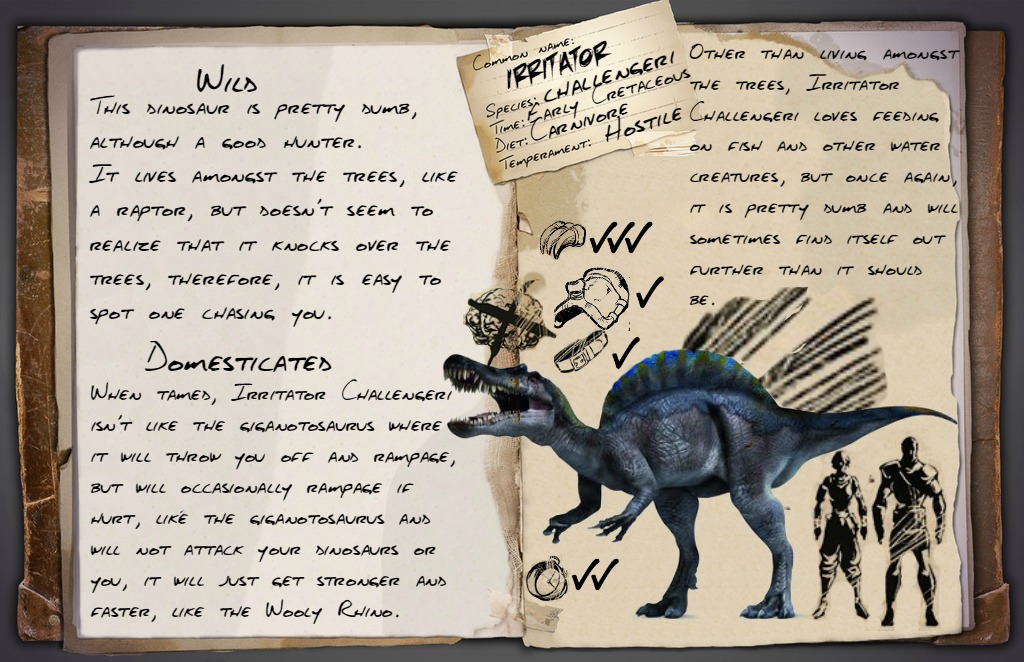 Wild
This dinosaur is pretty dumb,
although a good hunter.
It lives amongst the trees, like
a raptor, but doesn't seem to
realize that it knocks over the
trees, therefore, it is easy to
spot one chasing you.
Domesticated
When tamed, Irritator Challengeri
isn't like the giganotosaurus where
it will throw you off and rampage,
but will occasionally rampage if
hurt, like the giganotosaurus and
will not attack your dinosaurs or
you, it will just get stronger and
faster, like the Wooly Rhino.
Common name:
Irritator
Species: Challengeri
Time: Early Cretaceous
Diet: Carnivore
Temperament: Hostile
Other than living amongst
the trees, Irritator
Challengeri loves feeding
on fish and other water
creatures, but once again,
it is pretty dumb and will
sometimes find itself out
further than it should
be.